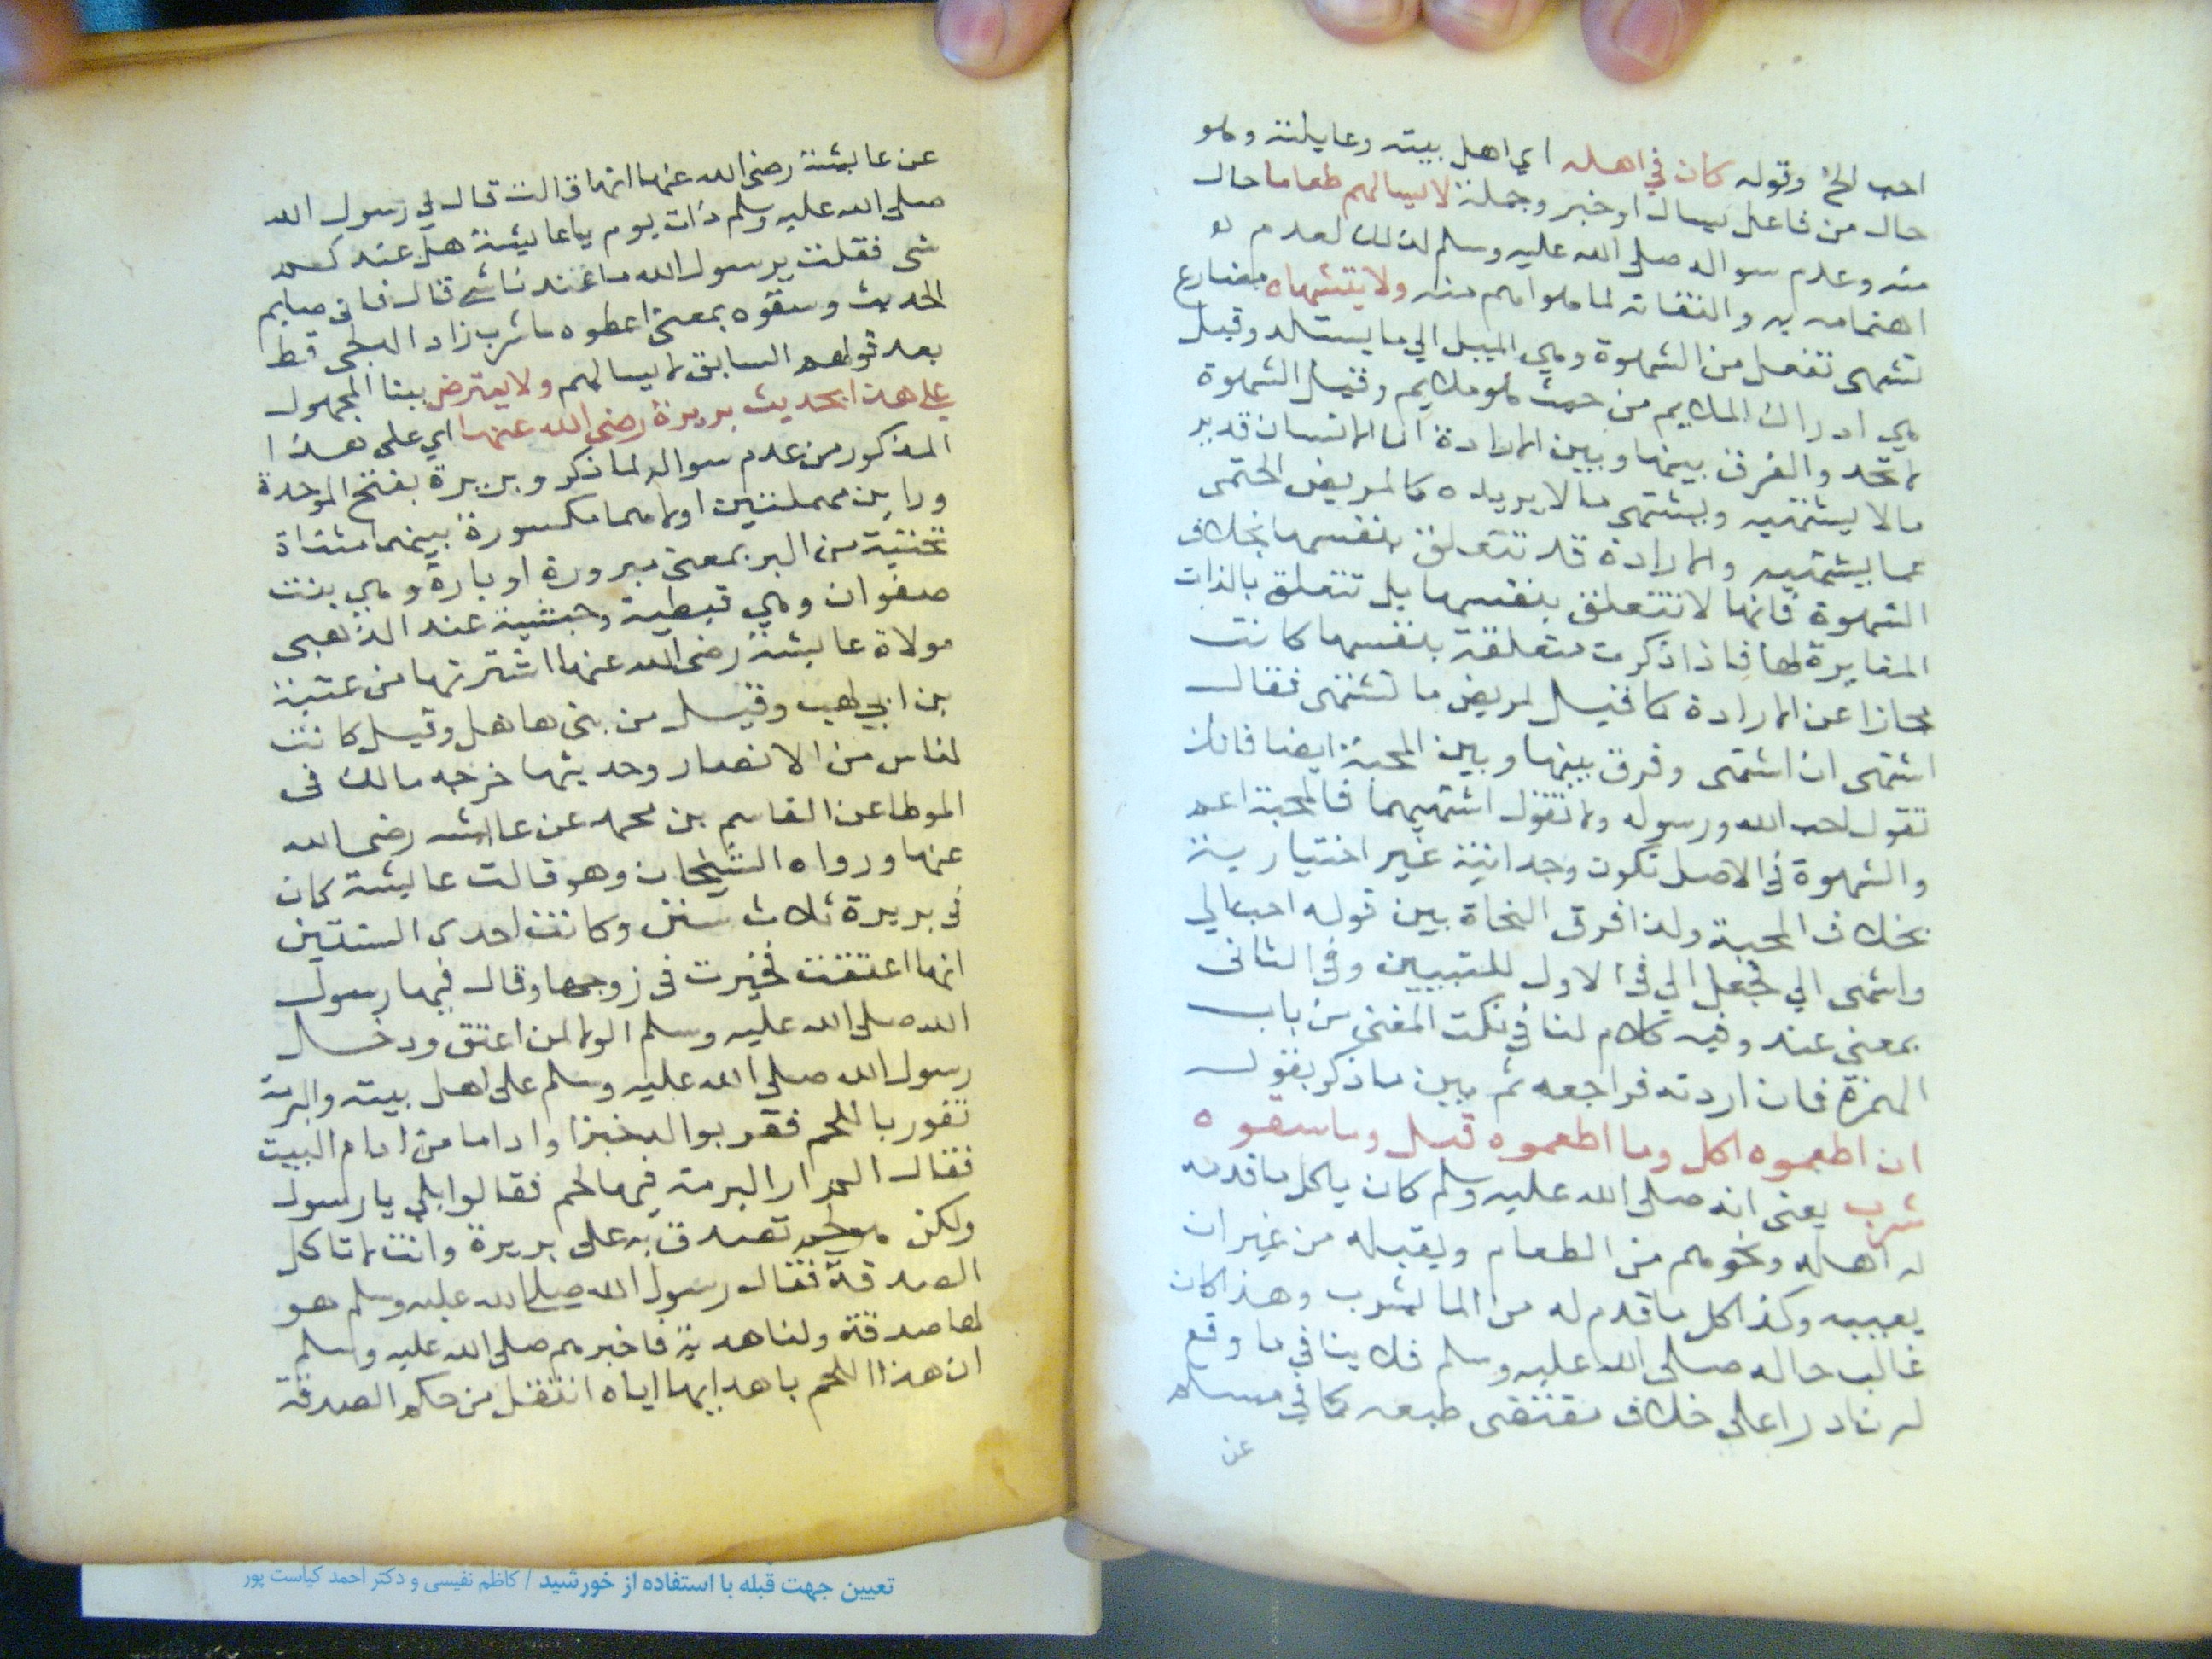 احب الخ وقوله كان في اهله اي اهل بيته وعايلته وهو
حال من فاعل يسال او خبر وجملة لا يسالهم طعاما حال
منه وعدم سواله صلى الله عليه وسلم لذلك لعدم
اهتمامه به والتفاته لما هو اهم منه ولا يتشهاه مضارع
تشهى تفعل من الشهوة وهي الميل الي ما يستلذ وقيل
هي ادراك الملايم من حيث هو ملايم وقيل الشهوة
لا تحد والفرق بينها وبين الارادة ان الانسان قد يريد
ما لا يشتهيه ويشتهى ما لا يريده كالمريض المحتمى
عما يشتهيه والارادة قد تتعلق بنفسها بخلاف
الشهوة فانها لا تتعلق بنفسها بل تتعلق بالذات
المغايرة لها فاذا ذكرت متعلقة بنفسها كانت
مجازا عن الارادة كما قيل لمريض ما تشتهى فقال
اشتهى ان اشتهى وفرق بينها وبين المحبة ايضا فانك
تقول احب الله ورسوله ولا تقول اشتهيهما فالمحبة اعم
والشهوة في الاصل تكون وجدانية غير اختيارية
بخلاف المحبة ولذا فرق النحاة بين قوله احب الي
واشهى الي فجعل الي في الاول للتبيين وفي الثانى
بمعني عند وفيه كلام لنا في نكت المغني من باب
الهمزة فان اردته فراجعه ثم بين ما ذكر بقوله
ان اطعموه اكل وما اطعموه قبل وما سقوه
شرب يعنى انه صلى الله عليه وسلم كان ياكل ما قدمه
له اهله ونحوهم من الطعام ويقبله من غير ان
يعيبه وكذا كل ما قدم له من الما لشرب وهذا كان
غالب حاله صلى الله عليه وسلم فلا ينافي ما وقع
له نادرا على خلاف مقتضى طبعه كما في مسلم
عن
عن عايشة رضى الله عنها انها قالت قال لي رسول الله
صلى الله عليه وسلم ذات يوم يا عايشة هل عندكم
شى فقلت يرسول الله ما عندنا شي قال فاني صايم
الحديث وسقوه بمعنى اعطوه ما شرب زاد البلجى قط
بعد قوله السابق لا يسالهم ولا يعترض ببنا المجهول
علي هذا بحديث بريرة رضي الله عنها اي على هذا
المذكور من عدم سواله لما ذكر وبريرة بفتح الموحدة
وراين مهملتين اولاهما مكسورة بينهما مثناة
تحتية من البر بمعنى مبرورة او بارة وهي بنت
صفوان وهي قبطية وحبشية عند الذهبى
مولاة عايشة رضى الله عنها اشترتها من عتبة
بن ابي لهب وقيل من بنى هاهل وقيل كانت
لناس من الانصار وحديثها خرجه مالك فى
الموطا عن القاسم بن محمد عن عايشه رضى الله
عنها ورواه الشيخان وهو قالت عايشة كان
فى بريرة ثلاث سنن وكانت احدى السنتين
انها اعتقت فخيرت فى زوجها وقال فيها رسول
الله صلى الله عليه وسلم الولا لمن اعتق ودخل
رسول الله صلى الله عليه وسلم على اهل بيته والبرمة
تفور باللحم فقربوا اليه خبزا واداما من ادام البيت
فقال الم ار البرمة فيها لحم فقالوا بلي يا رسول
ولكن هو لحم تصدق به على بريرة وانت لا تاكل
الصدقة فقال رسول الله صلي الله عليه وسلم هو
لها صدقة ولنا هدية فاخبرهم صلى الله عليه وسلم
ان هذا اللحم باهدايها اياه انتقل من حكم الصدقة
تعیین جهت قبله با استفاده از خورشید / کاظم نفیسی و دکتر احمد کیاست پور